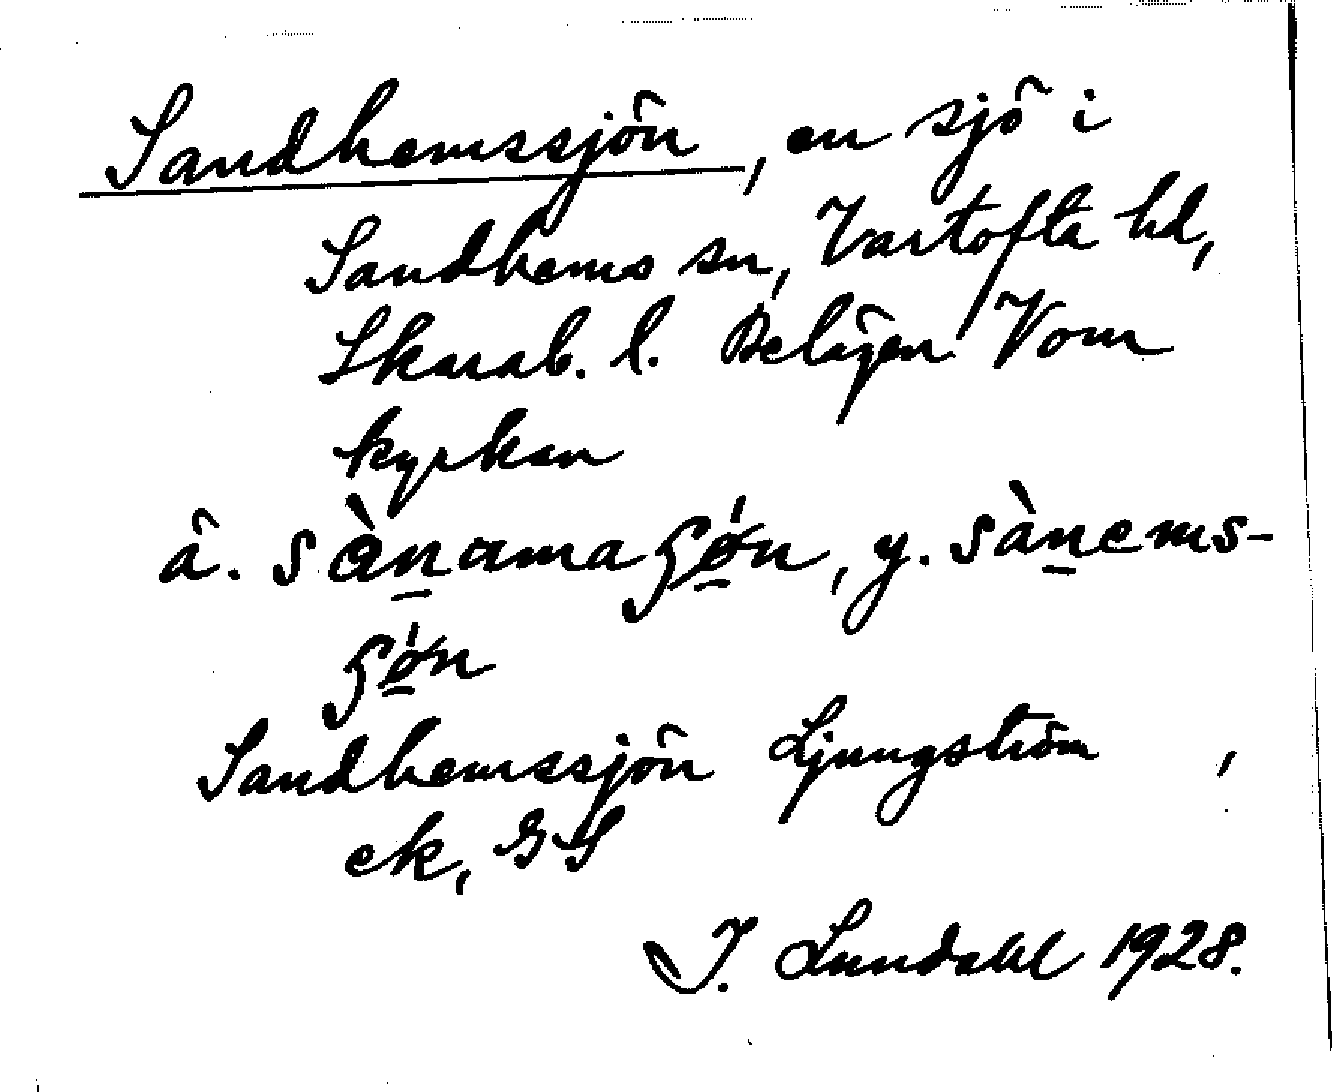 Sandhemssjön, en sjö i
Sandhems sn, Vartofta hd,
Skarab. l. Belägen V om
kyrkan
ä. sàn̠amaʂǿ̠n, y. sàn̠ems-
ʂǿ̠n
Sandhemssjön Ljungström,
ek, GS
I. Lundahl 1928.